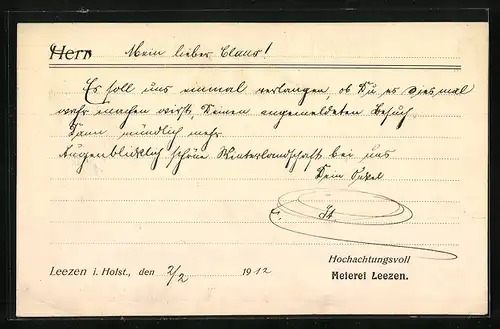 Herrn Mein lieber Claus!
Es soll uns einmal verlangen, ob Du es diesmal
wahr machen wirst, Deinen angemeldeten Besuch.
Dann mündlich mehr.
Augenblicklich schöne Winterlandschaft bei uns
Dein Onkel
Hochachtungsvoll
Leezen i. Holst., den 2/2 1912 Meierei Leezen.